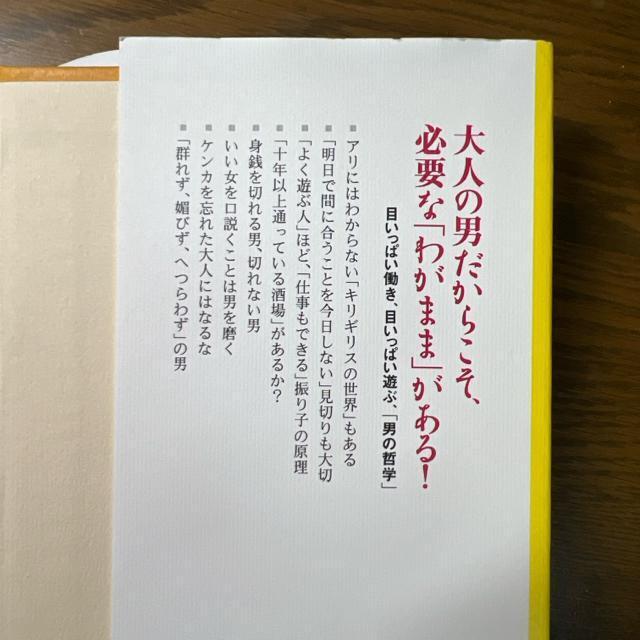 大人の男だからこそ、
必要な「わがまま」がある!
目いっぱい働き、目いっぱい遊ぶ、「男の哲学」
■アリにはわからない「キリギリスの世界」もある
■「明日で間に合うことを今日しない」見切りも大切
■「よく遊ぶ人」ほど「仕事もできる」振り子の原理
■「十年以上通っている酒場」があるか?
■身銭を切れる男、切れない男
■いい女を口説くことは男を磨く
■ケンカを忘れた大人にはなるな
■「群れず、媚びず、へつらわず」の男